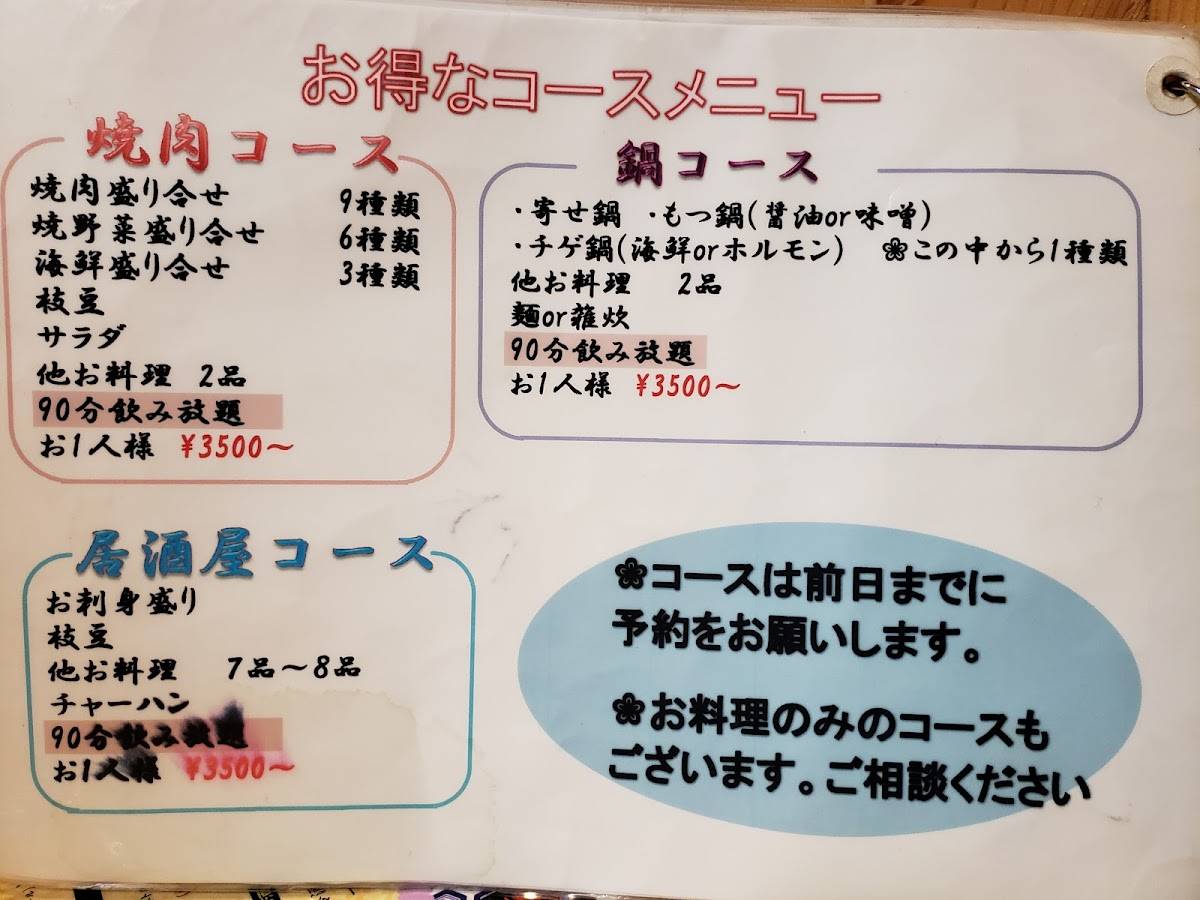 お得なコースメニュー
焼肉コース
焼肉盛り合せ 9種類
焼野菜盛り合せ 6種類
海鮮盛り合せ 3種類
枝豆
サラダ
他お料理 2品
90分飲み放題
お1人様 ¥3500～
鍋コース
・寄せ鍋 ・もつ鍋(醤油or味噌)
・チゲ鍋(海鮮orホルモン) ❀この中から1種類
他お料理 2品
麺or雑炊
90分飲み放題
お1人様 ¥3500～
居酒屋コース
お刺身盛り
枝豆
他お料理 7品～8品
チャーハン
90分飲み放題
お1人様 ¥3500～
❀コースは前日までに
予約をお願いします。
❀お料理のみのコースも
ございます。ご相談ください